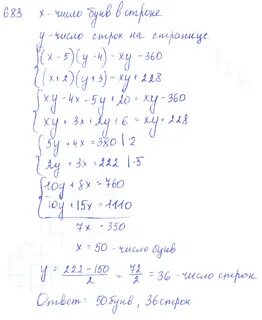 683 x - число букв в строке
y - число строк на странице
(x-5)(y-4)=xy-360
(x+2)(y+3)=xy+228
xy-4x-5y+20=xy-360
xy+3x+2y+6=xy+228
5y+4x=380 |·2
2y+3x=222 |·5
10y+8x=760
10y+15x=1110
7x=350
x=50 - число букв
y = (222-150)/2 = 72/2 = 36 - число строк
Ответ: 50 букв, 36 строк